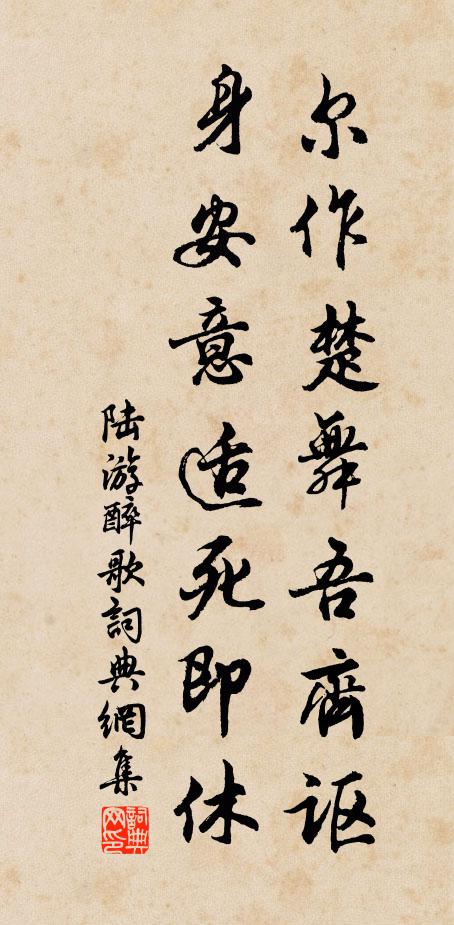 尔作楚舞吾齊讴
身安意适死即休
陆游醉歌詞典網集
詞典网印